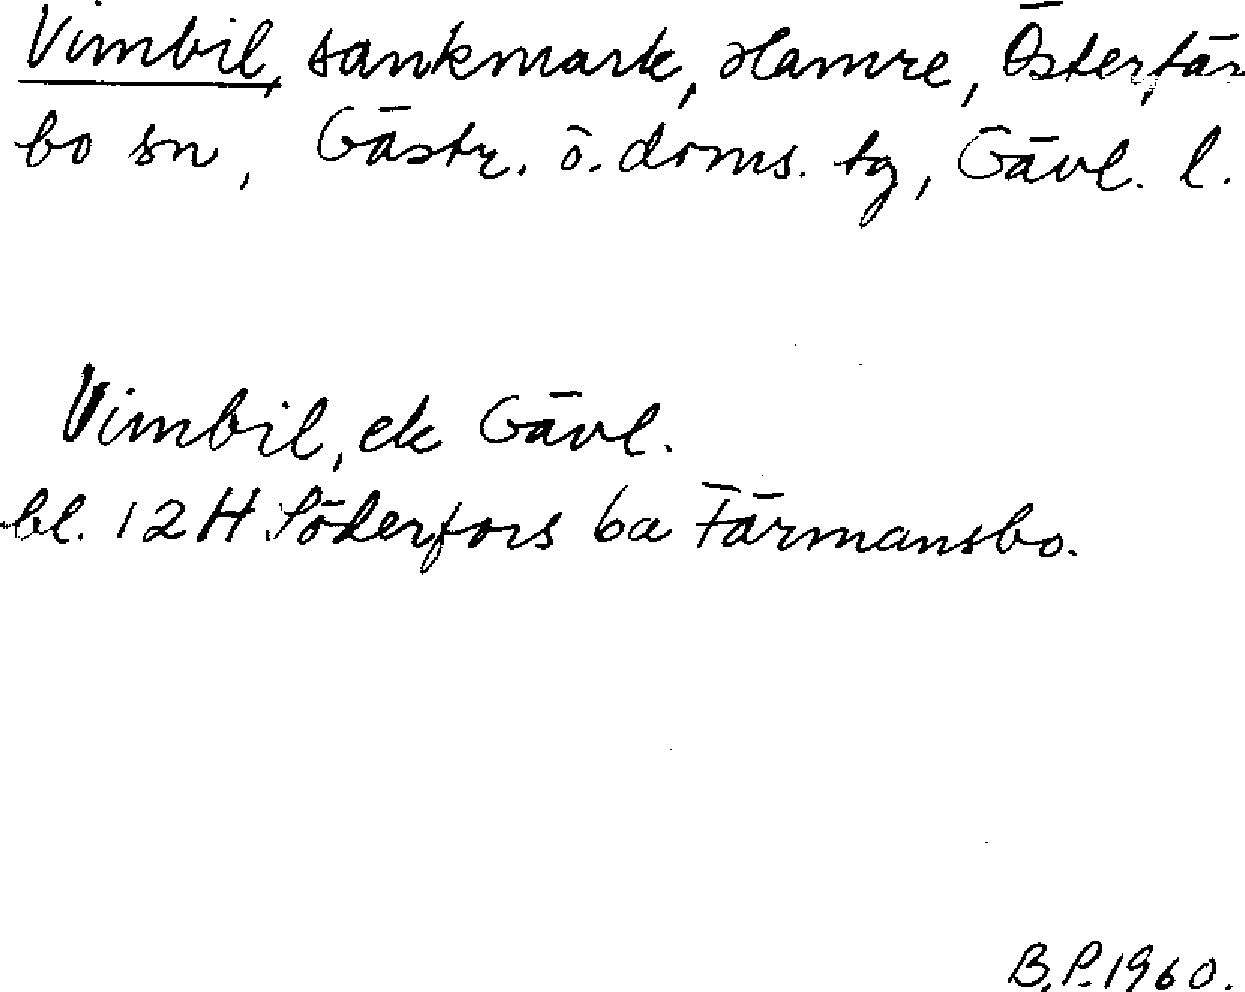 Vimbil, sankmark, Hamre, Österfär
bo sn, Gästr. ö. doms. tg, Gävl. l.
Vimbil, ek Gävl.
bl. 12H Söderfors 6a Färmansbo.
B.P. 1960.